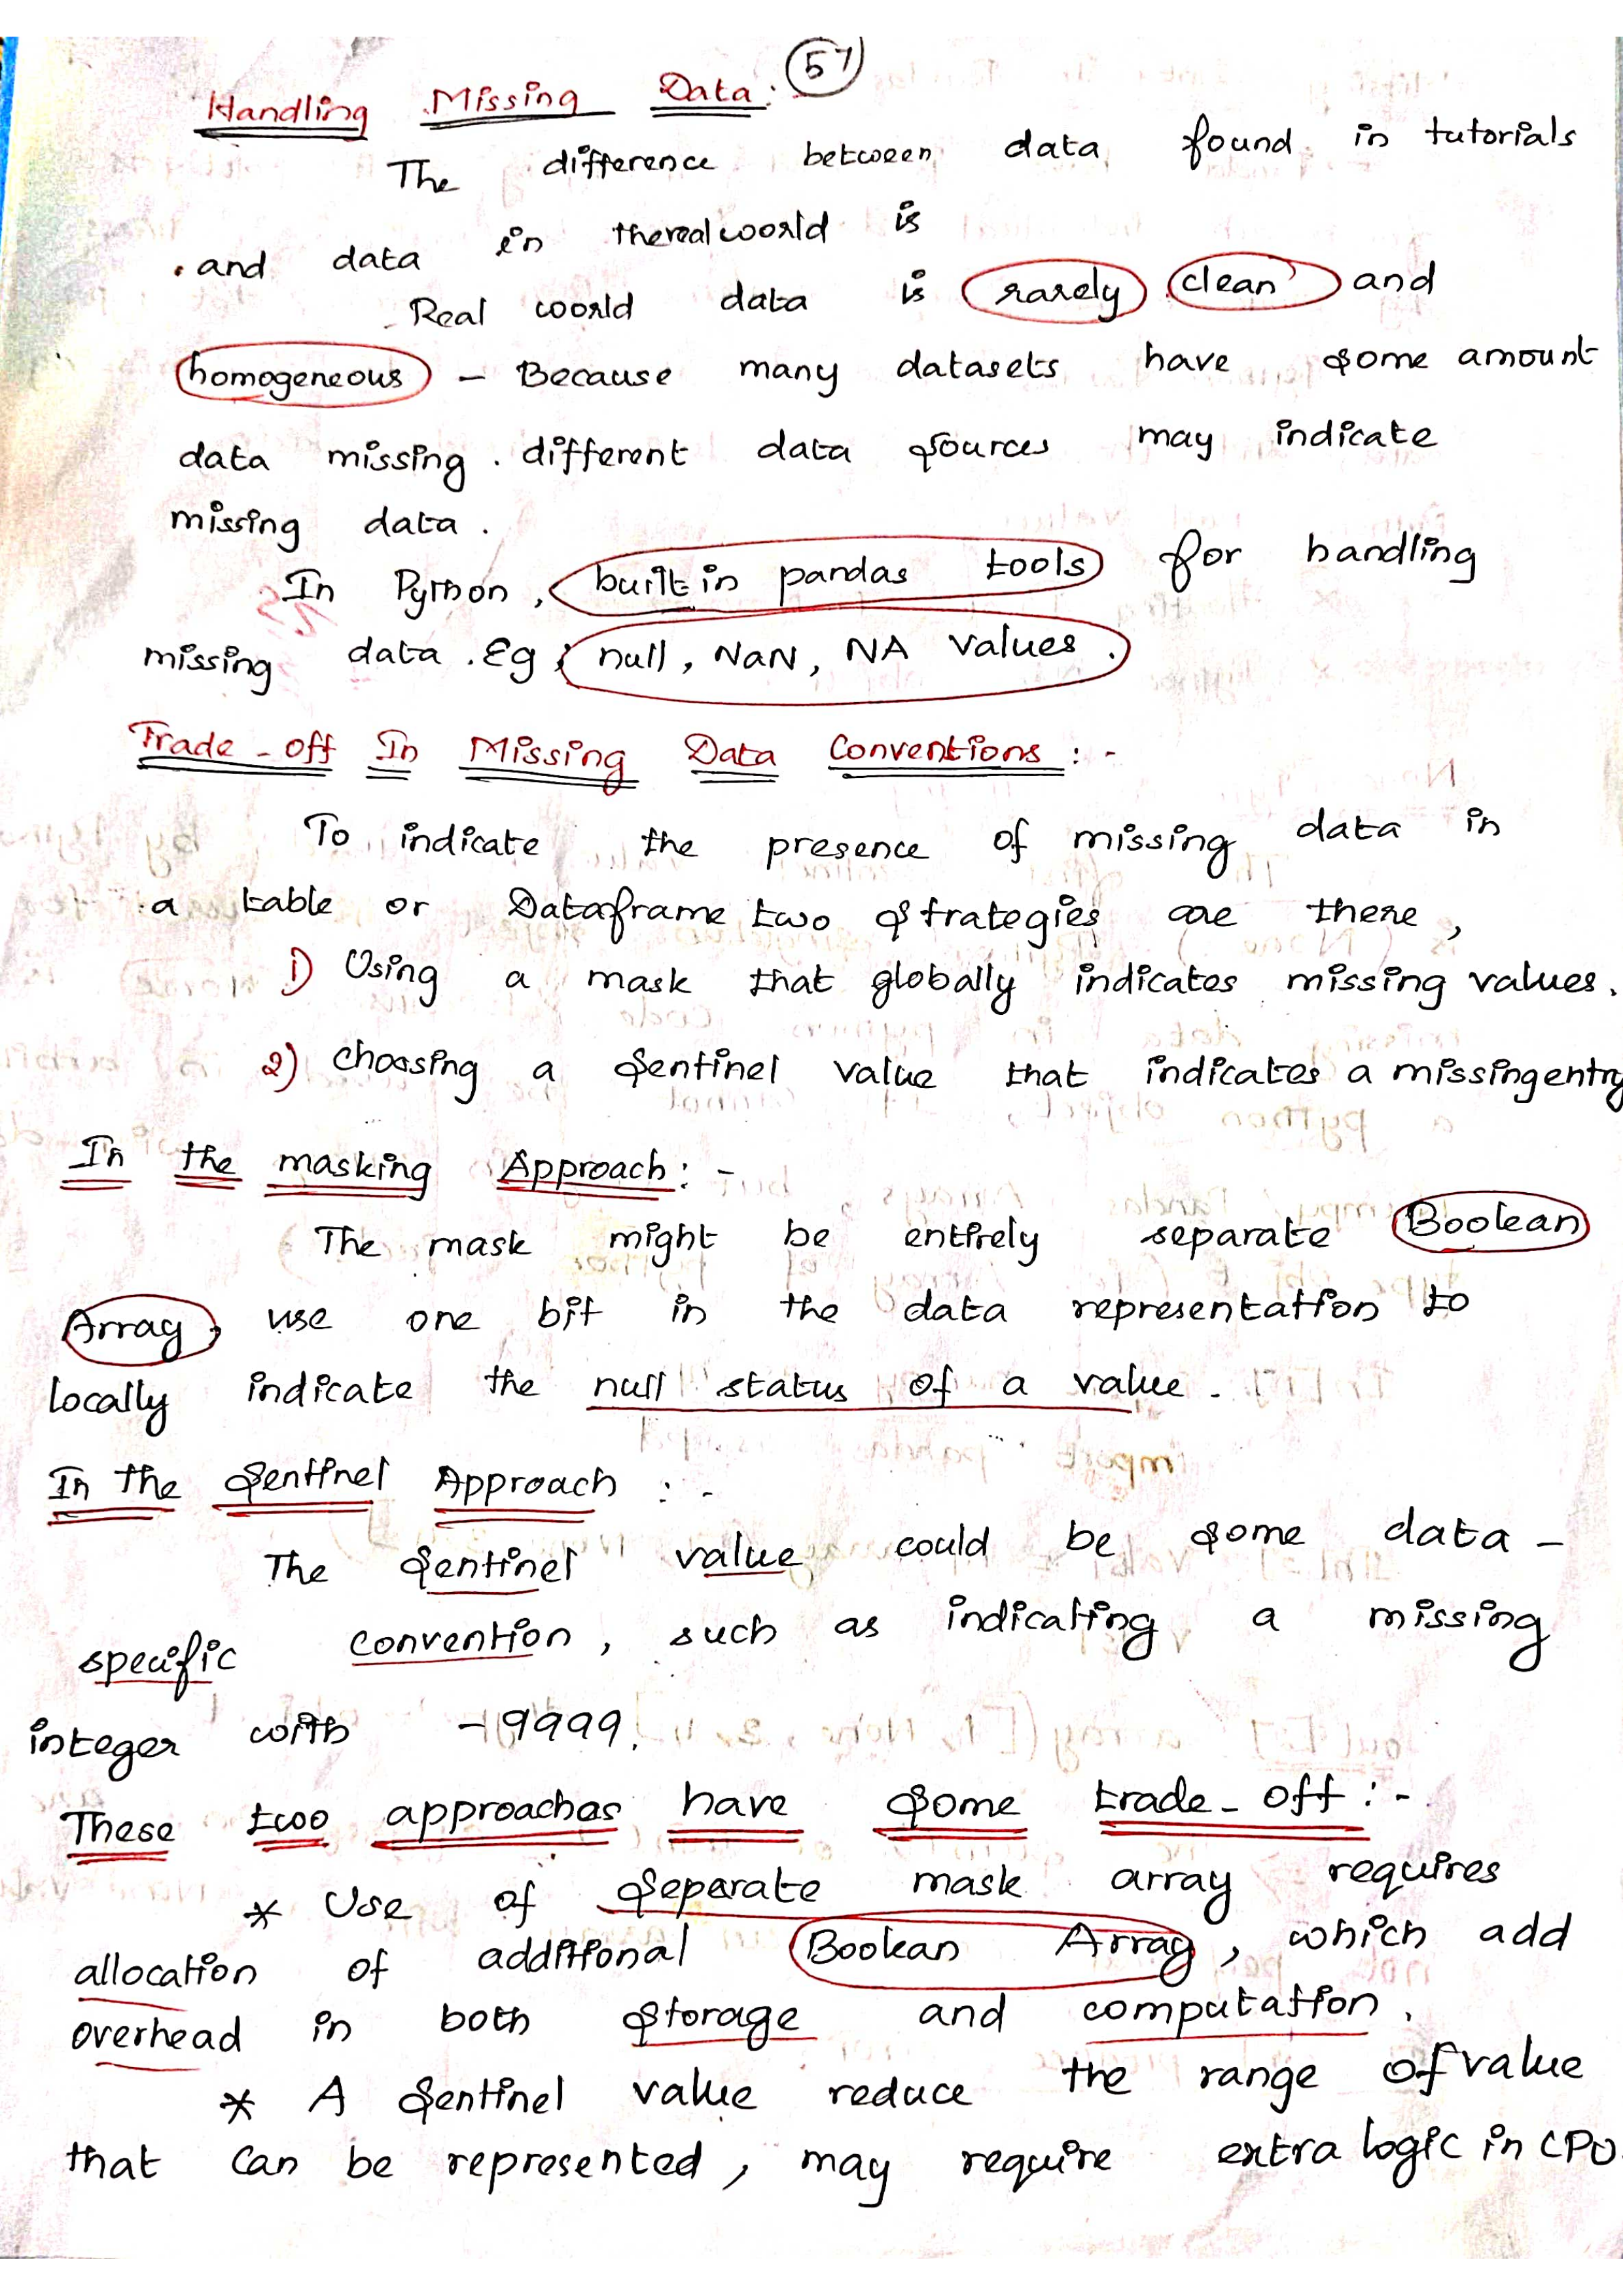 57
Handling Missing Data:
The difference between data found in tutorials
and data in therealworld is
Real world data is rarely clean and
homogeneous - Because many datasets have some amount
data missing. different data sources may indicate
missing data.
In Python, built in pandas tools for handling
missing data. Eg: null, NaN, NA values.
Trade-off In Missing Data Conventions:-
To indicate the presence of missing data in
a table or Dataframe two strategies are there,
1) Using a mask that globally indicates missing values.
2) Choosing a Sentinel value that indicates a missingentry
In the masking Approach:-
The mask might be entirely separate Boolean
Array, use one bit in the data representation to
locally indicate the null status of a value.
In the Sentinel Approach :-
The Sentinel value could be some data-
specific convention, such as indicating a missing
integer with -9999.
These two approaches have some trade-off:-
* Use of Seperate mask array requires
allocation of additional Boolean Array, which add
overhead in both storage and computation.
* A Sentinel value reduce the range of value
that can be represented, may require extra logic in CPU.